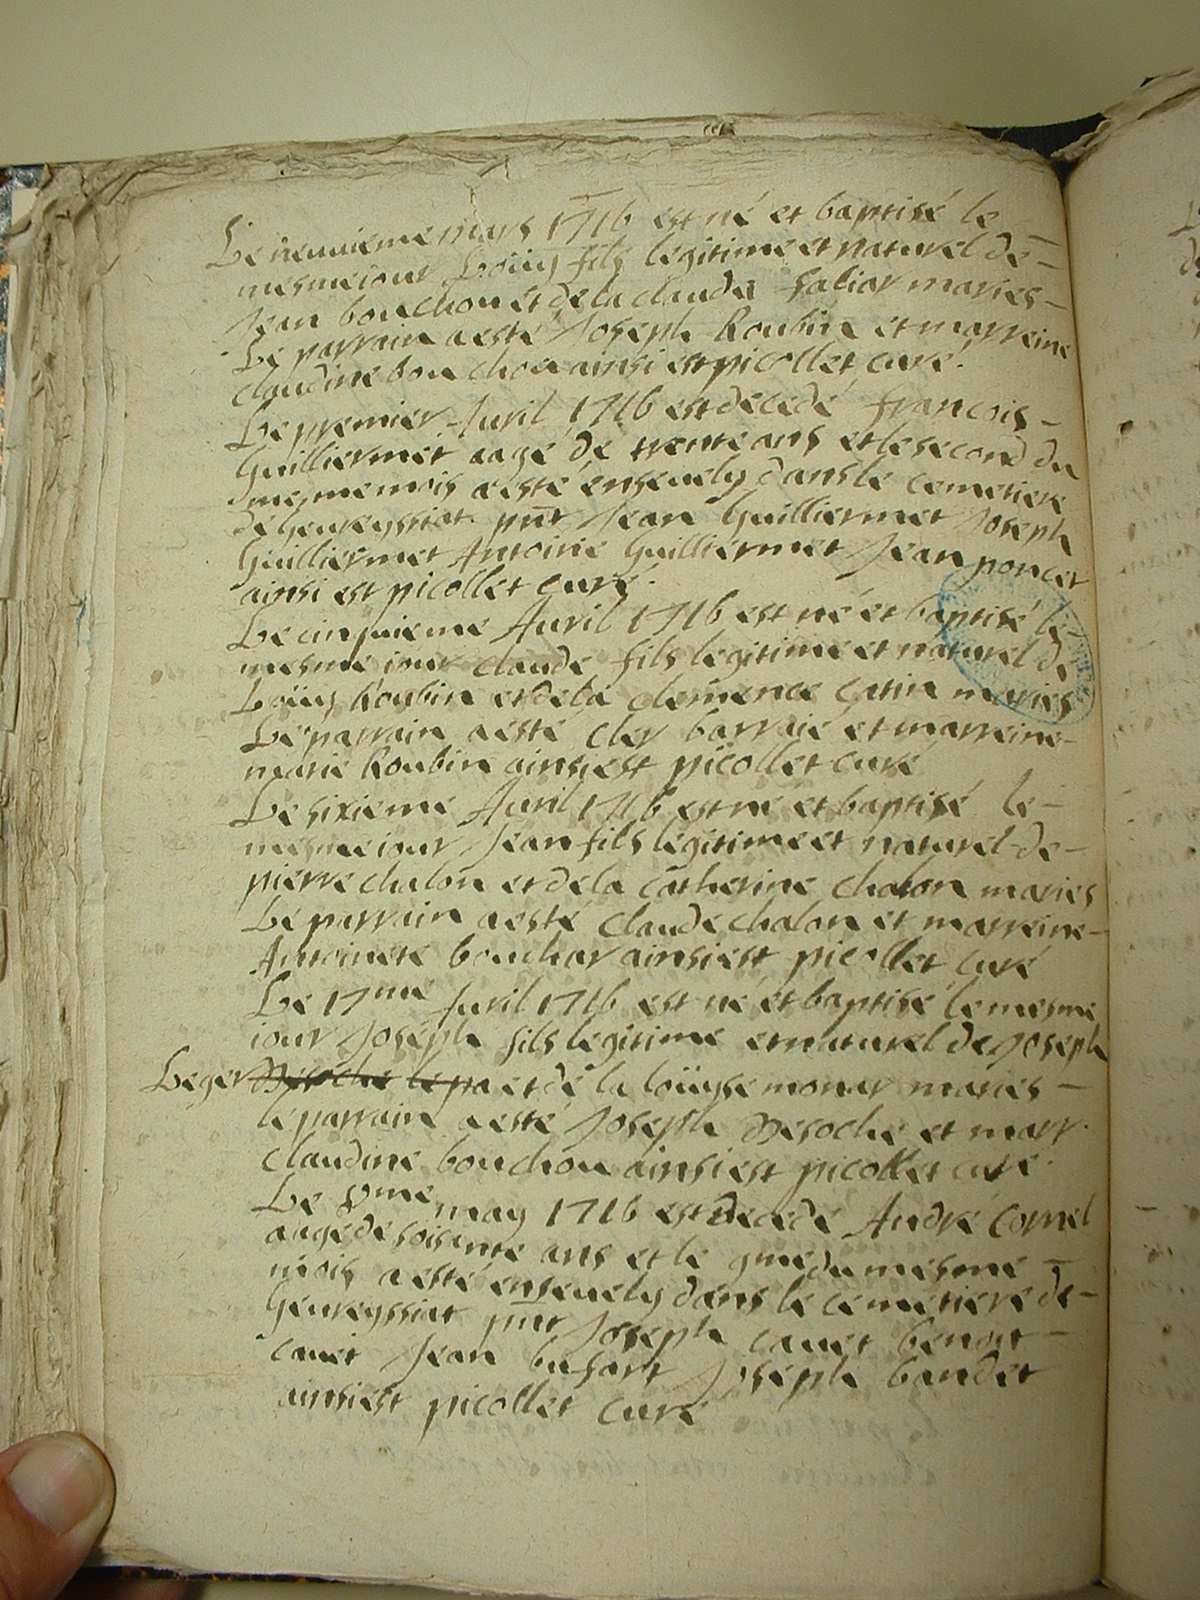 Le neuuieme mars 1716 est né et baptisé le
mesme iour Loüy fils legitime et naturel de
Jean bouchou et de la claudia saliar maries
Le parrain a esté Joseph Roubin et marreine
claudine bouchou ainsi est picollet curé
Le premier Auril 1716 est decedé francois
Guilliermet aagé de trente ans et le second du
mesme mois a esté enseuely dans le cemetiere
de geureyssiat pnt Jean Guilliermet Joseph
Guilliermet Antoine Guilliermet Jean poncet
ainsi est picollet curé
Le cinquieme Auril 1716 est né et baptisé le
mesme iour claude fils legitime et naturel de
Loüy Roubin et de la clemence catin maries
Le parrain a esté cler et marreine
marie Roubin ainsi est picollet curé
Le sixieme Auril 1716 est né et baptisé le
mesme iour Jean fils legitime et naturel de
pierre chalon et de la catherine chalon maries
Le parrain a esté claude chalon et marreine
Antoinete bouchar ainsi est picollet curé
Le 17me Auril 1716 est né et baptisé le mesme
iour Joseph fils legitime et naturel de Joseph
Leger et de la loüyse monar maries
le parrain a esté Joseph Besoche et marr.
claudine bouchou ainsi est picollet curé
Le 8me may 1716 est decedé André Cornel
aagé de soisente ans et le 9me du mesme
mois a esté enseuely dans le cemetiere de
Geureyssiat pnt Joseph cauet benoit
cauet Jean bufart Joseph baudet
ainsi est picollet curé